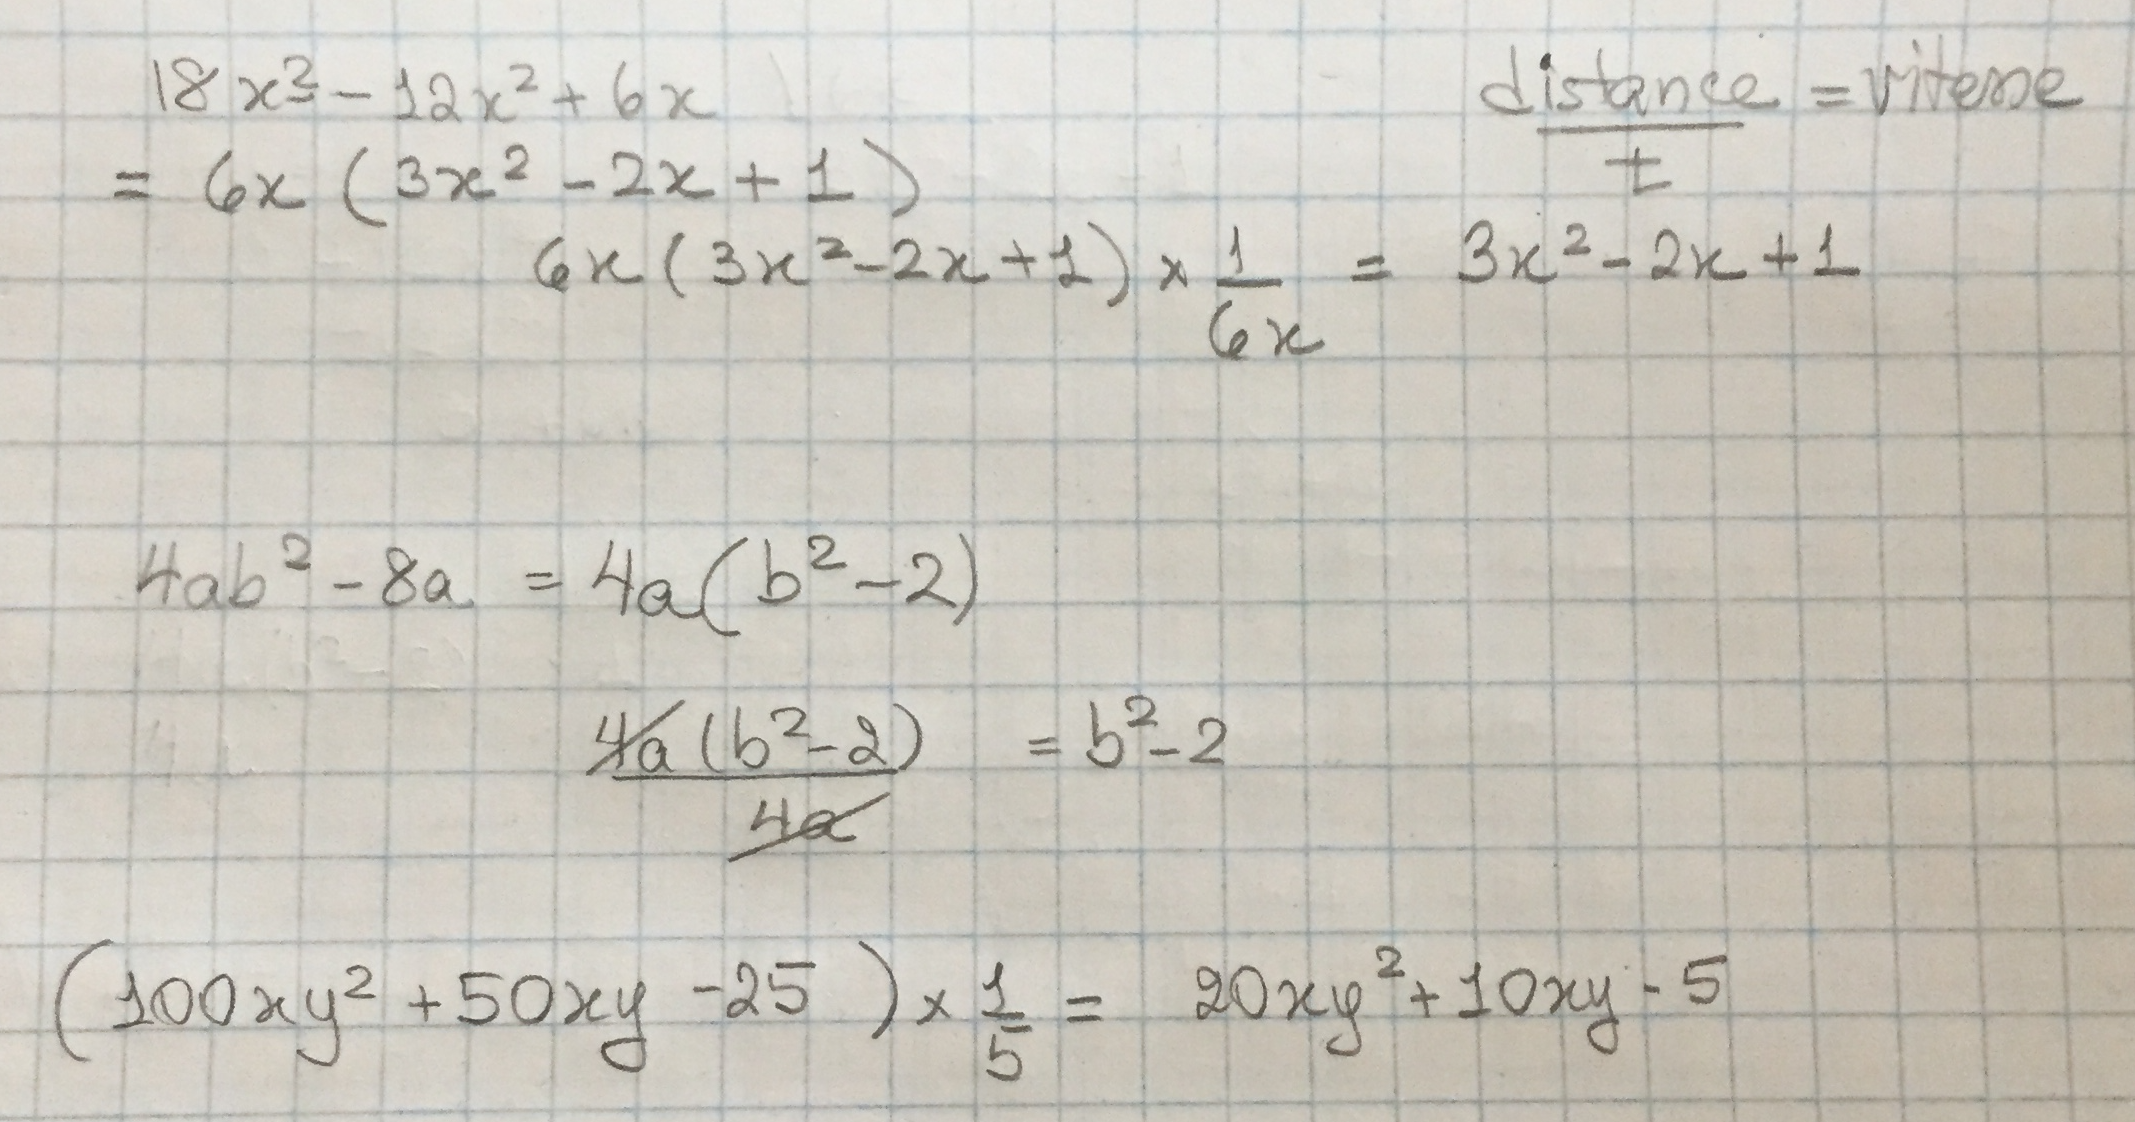 18x³ - 12x² + 6x
distance/t = vitesse
= 6x (3x² - 2x + 1)
6x (3x² - 2x + 1) × 1/6x = 3x² - 2x + 1
4ab² - 8a = 4a(b² - 2)
4a(b² - 2)/4a = b² - 2
(100xy² + 50xy - 25) × 1/5 = 20xy² + 10xy - 5